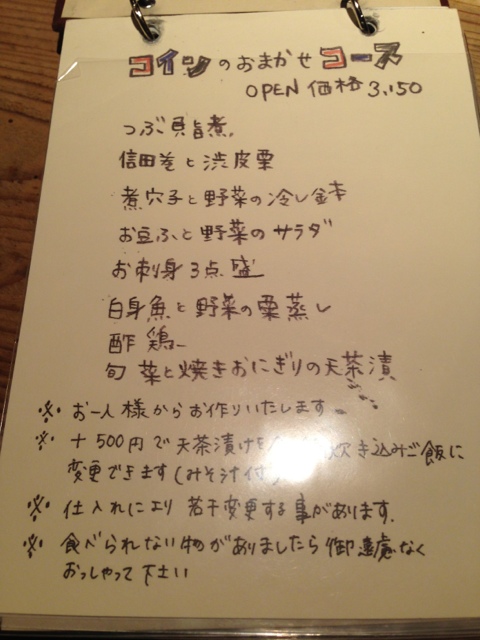 コインのおまかせコース
OPEN 価格 3,150
つぶ貝旨煮
信田巻と渋皮栗
煮穴子と野菜の冷し鉢
お豆ふと野菜のサラダ
お刺身 3点盛
白身魚と野菜の栗蒸し
酢鶏
旬菜と焼きおにぎりの天茶漬
※ お一人様からお作りいたします
※ +500円で天茶漬けを 炊き込みご飯に
変更できます(みそ汁付)
※ 仕入れにより 若干変更する事があります.
※ 食べられない物がありましたら御遠慮なく
おっしゃって下さい